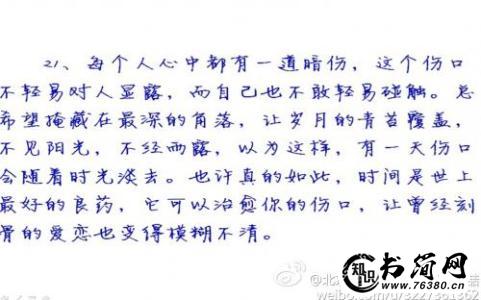 21、每个人心中都有一道暗伤，这个伤口
不轻易对人显露，而自己也不敢轻易碰触。总
希望掩藏在最深的角落，让岁月的青苔覆盖，
不见阳光，不经雨露，以为这样，有一天伤口
会随着时光淡去。也许真的如此，时间是世上
最好的良药，它可以治愈你的伤口，让曾经刻
骨的爱恋也变得模糊不清。
知识
书简网
www.76380.cn